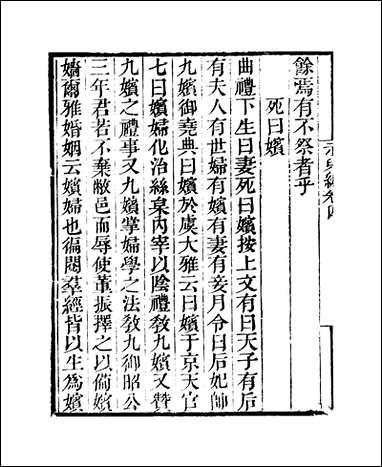 餘焉有不祭者乎
死曰嬪
曲禮下生曰妻死曰嬪按上文有曰天子有后
有夫人有世婦有嬪有妻有妾月令曰后妃帥
九嬪御堯典曰嬪於虞大雅云曰嬪于京天官
七曰嬪婦化治絲枲內宰以陰禮敎九嬪又贊
九嬪之禮事又九嬪掌婦學之法敎九御昭公
三年君若不棄敝邑而辱使董振擇之以備嬪
嬙爾雅婚姻云嬪婦也徧閱羣經皆以生爲嬪